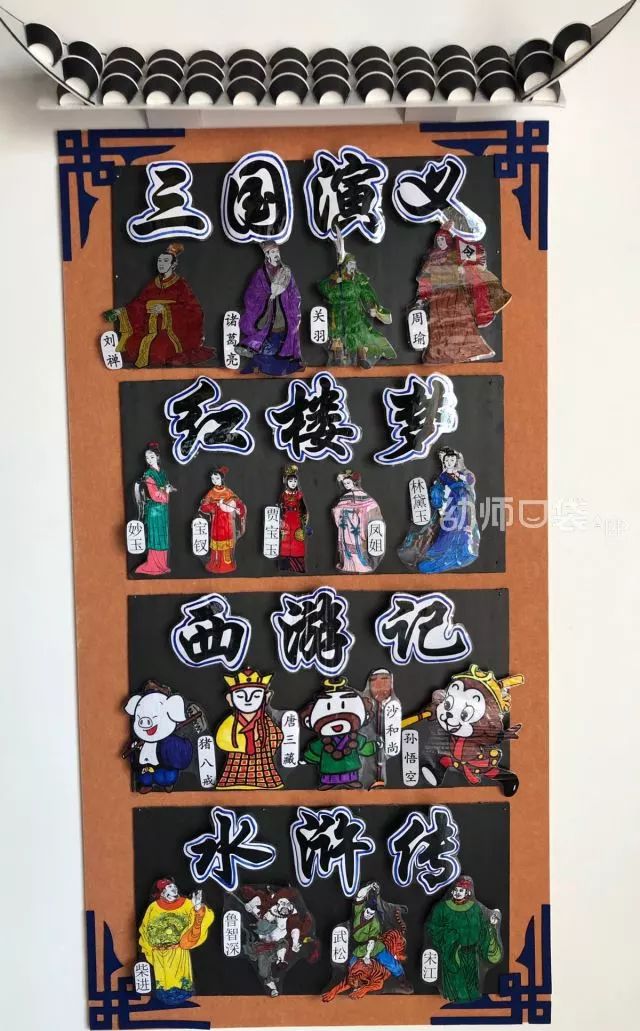 三国演义
刘禅
诸葛亮
关羽
周瑜
令
红楼梦
妙玉
宝钗
贾宝玉
凤姐
林黛玉
幼师口袋App
西游记
猪八戒
唐三藏
沙和尚
孙悟空
水浒传
柴进
鲁智深
武松
宋江